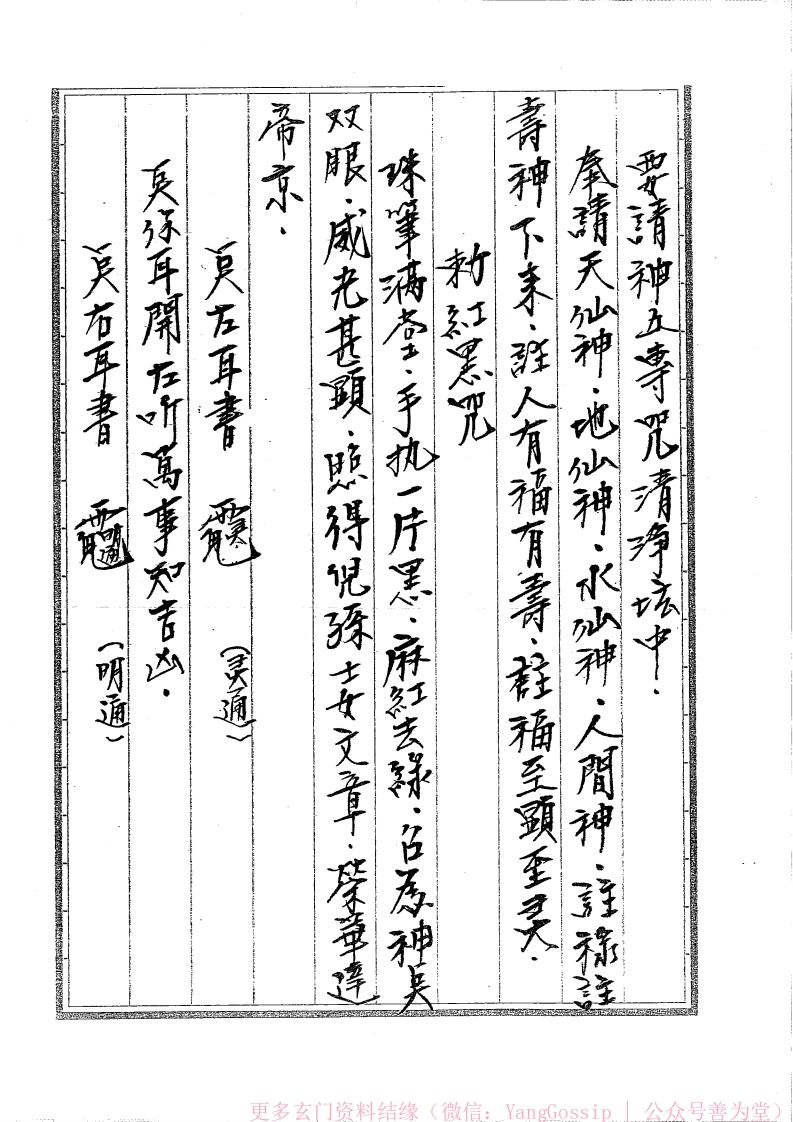 要請神五專咒清淨坛中.
奉請天仙神.地仙神.水仙神.人間神.註祿註
壽神下来.註人有福有壽.註福至顕至灵.
敕紅墨咒
珠筆滿堂.手执一片墨.麻紅去緑.名為神吳
双眼.威光甚顕.照得倪孫士女文章.榮華達
帝京.
吳左耳書
(灵通)
吳徐耳開左听萬事知吉凶.
吳右耳書
(明通)
更多玄门资料结缘（微信：YangGossip | 公众号善为堂）